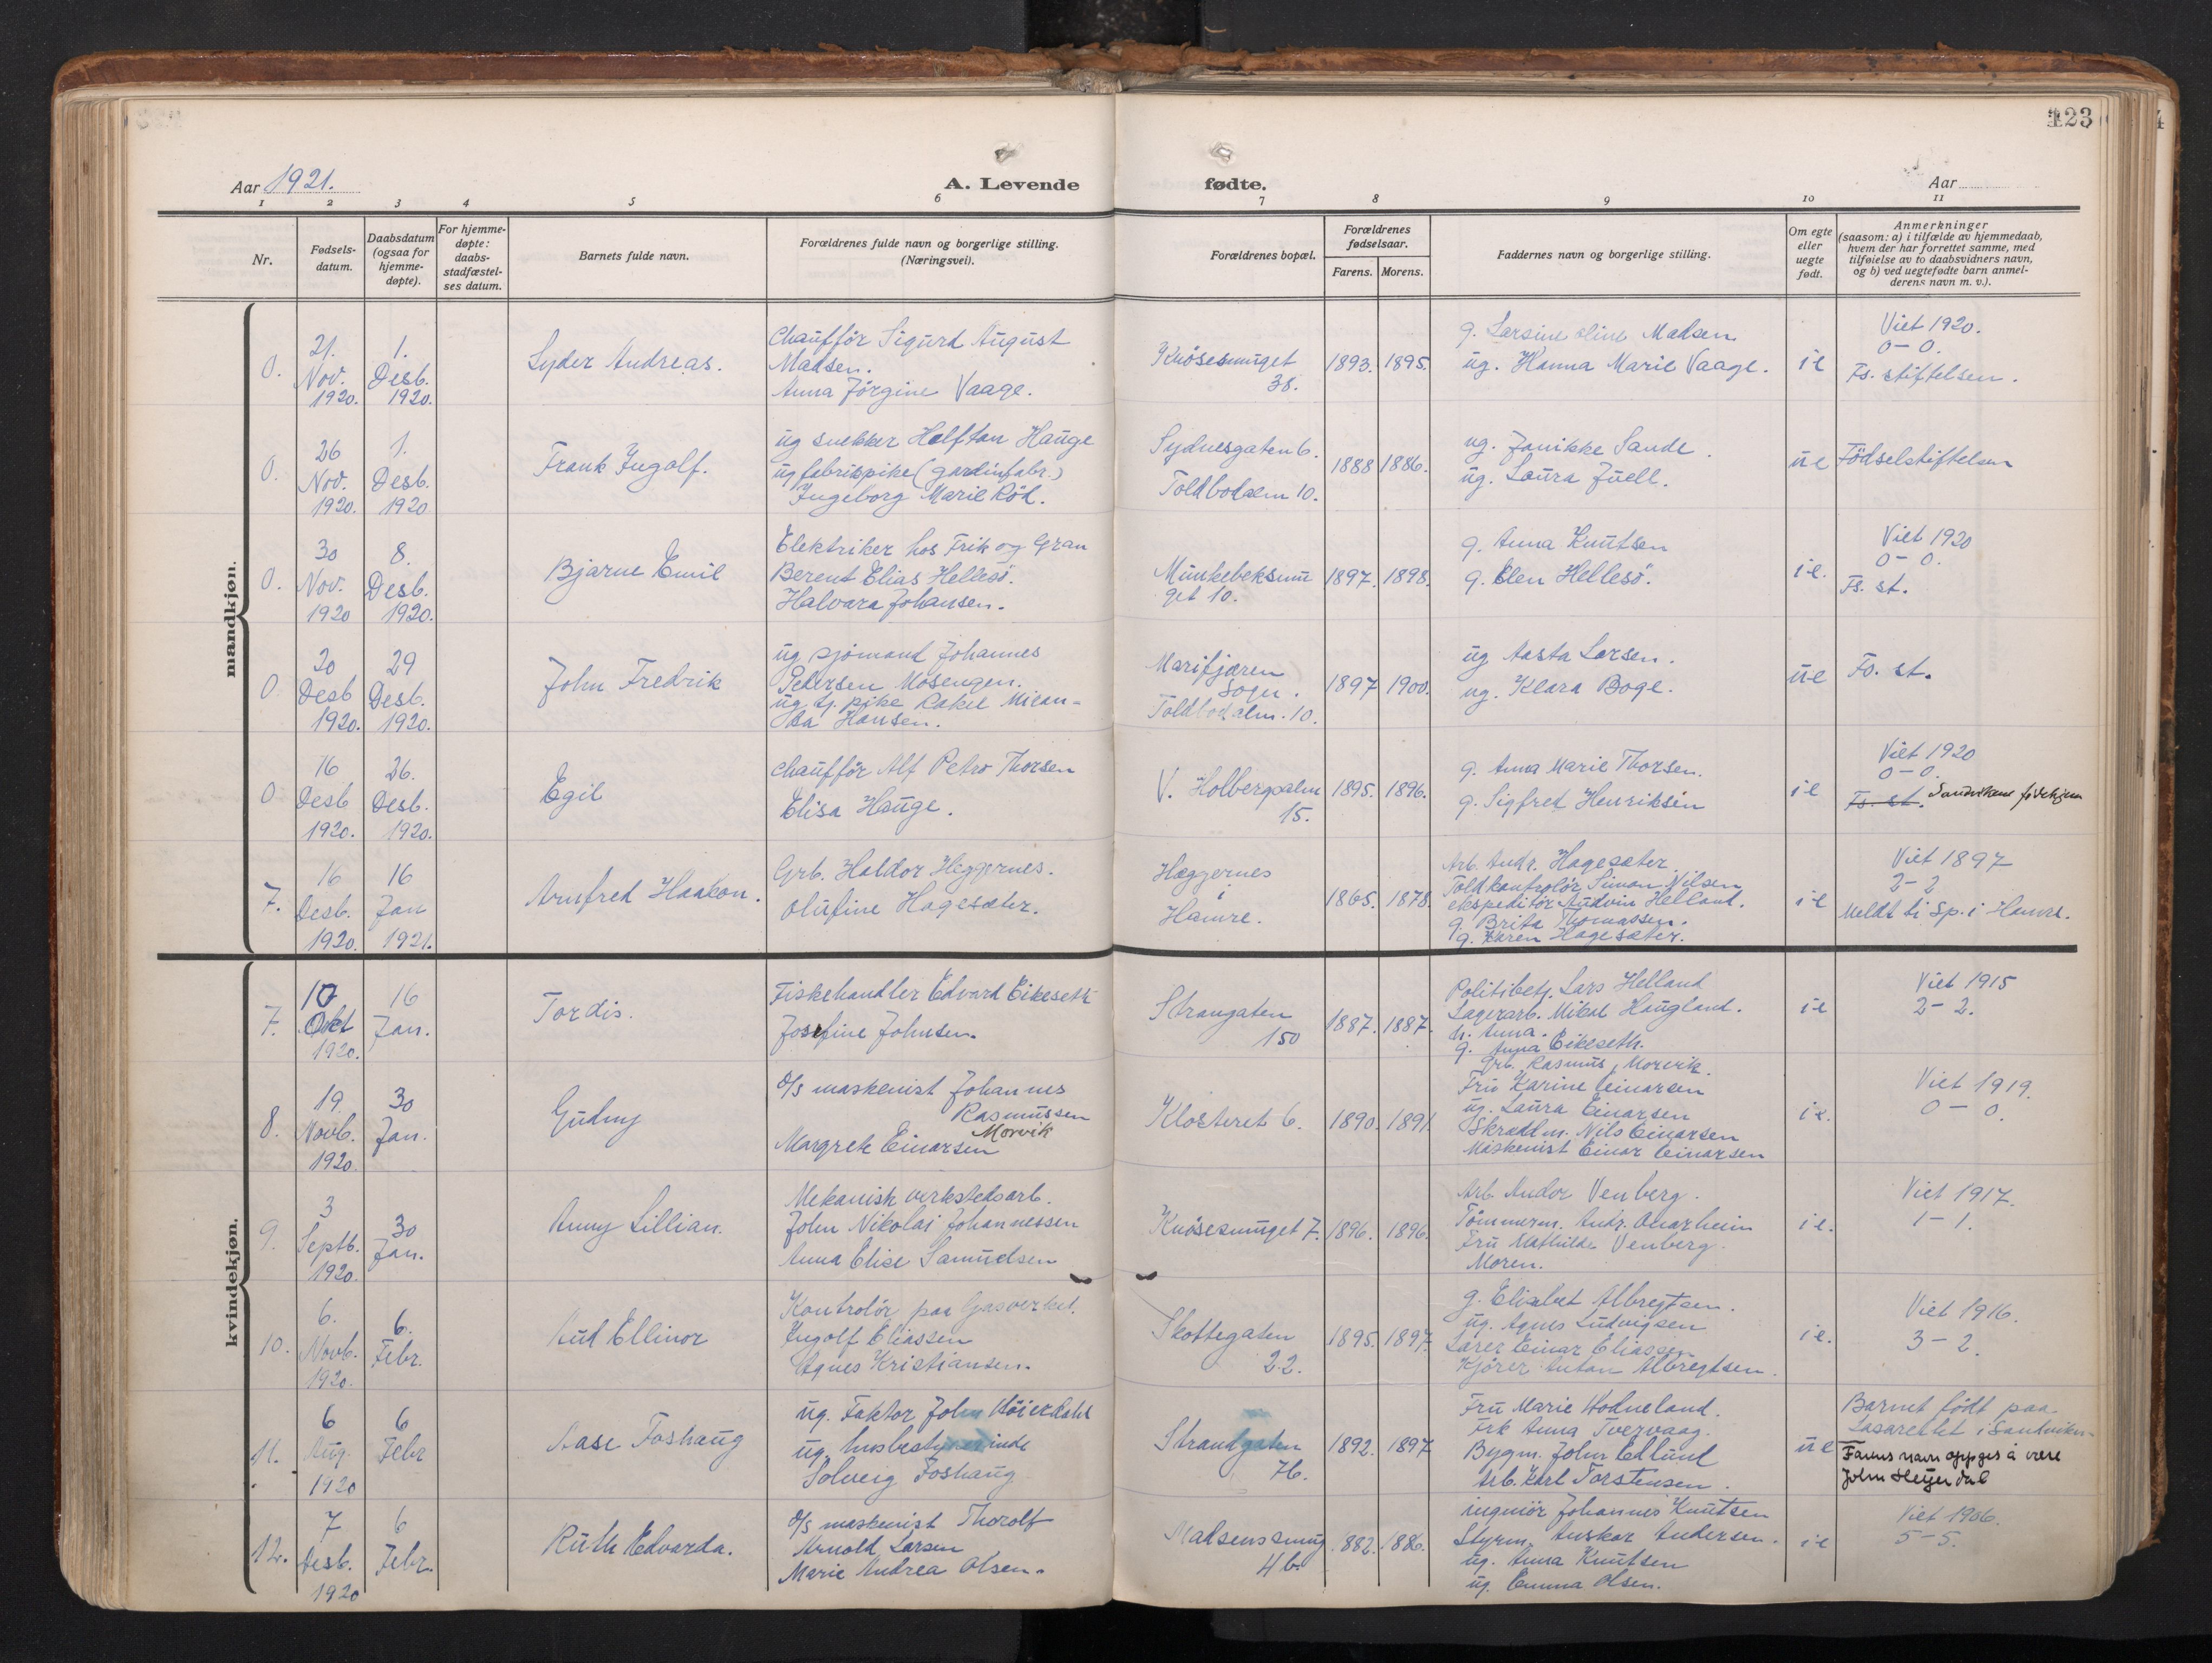 123
Aar 1921.
A. Levende
fødte.
Aar
1 2 3 4 5 6 7 8 9 10 11
Nr.
Fødsels-
datum.
Daabsdatum
(ogsaa for
hjemme-
døpte).
For hjemme-
døpte:
daabs-
stadfæstel-
ses datum.
Barnets fulde navn.
Forældrenes fulde navn og borgerlige stilling.
(Næringsvei).
Forældrenes bopæl.
Forældrenes
fødselsaar.
Farens. Morens.
Faddernes navn og borgerlige stilling.
Om egte
eller
uegte
født.
Anmerkninger
(saasom: a) i tilfælde av hjemmedaab,
hvem der har forrettet samme, med
tilføielse av to daabsvidners navn,
og b) ved uegtefødte barn anmel-
derens navn m. v.).
mandkjøn.
0.
21.
Nov.
1920.
1.
Desb.
1920.
Lyder Andreas.
Chauffør Sigurd August
Madsen.
Anna Jørgine Vaage.
Knøsesmuget
38.
1893. 1895.
g. Larsine Oline Madsen
ug. Hanna Marie Vaage.
ie
Viet 1920.
0-0.
Fs. stiftelsen.
0.
26
Nov.
1920.
1.
Desb.
1920
Frank Ingolf.
ug snekker Halftan Hauge
ug fabrikpike (gardinfabr.)
Ingeborg Marie Röd.
Sydnesgaten 6.
Toldbodalm 10.
1888 1886.
ug. Janikke Sande.
ug. Laura Juell.
ue
Födselstiftelsen
0.
30
Nov.
1920
8.
Desb.
1920.
Bjarne Emil
Elektriker hos Frik og Gran
Berent Elias Hellesö.
Halvara Johansen.
Munkebeksmu
get 10.
1897. 1898.
g. Anna Knutsen
g. Elen Hellesö.
ie.
Viet 1920
0-0.
Fs. st.
0.
20
Desb
1920.
29
Desb.
1920.
John Fredrik
ug sjömand Johannes
Petersen Mosengen.
ug tj. pike Rakel Milan-
da Hansen.
Marifjæren
Sogn.
Toldbodalm. 10.
1897 1900.
ug Aasta Larsen.
ug. Klara Boge.
ue
Fs. st.
0
16
Desb
1920.
26.
Desb.
1920.
Egil
Chauffør Alf Petro Thorsen
Elisa Hauge.
V. Holbergalm
15.
1895. 1896.
g. Anna Marie Thorsen.
g. Sigfred Henriksen
ie
Viet 1920
0-0.
Fs. st. Sandvikens fødehjem
7.
16
Desb.
1920.
16
Jan
1921.
Arnfred Haakon.
Grb. Haldor Heggernes.
Olufine Hagesæter.
Hæggernes
i
Hamre.
1865. 1878.
Arb. Andr. Hagesæter.
Toldkontrolör Simon Nilsen
ekspeditör Audvin Helland.
g. Brita Thomassen.
g. Karen Hagesæter.
ie
Viet 1897
2-2
Meldt ti Sp. i Hamre.
kvindekjøn.
7.
10
Okt
1920.
16
Jan.
Tordis.
Fiskehandler Edvard Eikeseth
Josefine Johnsen.
Strangaten
150
1887. 1887.
Politibetj. Lars Helland
Lagerarb. Mikal Haugland.
h. Anna.
g. Anna Eikeseth.
ie
Viet 1915
2-2.
8.
19
Novb.
1920.
30
Jan.
Gudny
d/s maskenist Johannes
Rasmussen
Morvik
Margrete Einarsen
Klosteret 6.
1890. 1891.
Grb. Rasmus Morvik.
Fru Karine Einarsen
ug. Laura Einarsen
Skrædm. Nils Einarsen
Maskenist Einar Einarsen
ie.
Viet 1919.
0-0.
9.
3
Septb.
1920.
30
Jan.
Anny Lillian.
Mekanisk verkstedsarb.
John Nikolai Johannessen
Anna Elise Samuelsen
Knösesmuget 7.
1896. 1896.
Arb. Andor Venberg.
Tömmerm. Andr. Onarheim
Fru Mathilde Venberg.
Moren.
ie.
Viet 1917.
1-1.
10.
6.
Novb.
1920.
6.
Febr.
Aud Ellinor
Kontrolör paa Gasverket.
Ingolf Eliassen
Agnes Kristiansen.
Skottegaten
22.
1895. 1897.
g. Elisabet Albregtsen.
ug. Agnes Ludvigsen
Lærer Einar Eliassen
Kjörer Anton Albregtsen.
ie.
Viet 1916.
3-2.
11.
6
Aug.
1920
6
Febr
Aase Foshaug
ug. Faktor John Höierdahl
ug. husbestyrerinde
Solveig Foshaug
Strandgaten
76.
1892. 1897
Fru Marie Hodneland.
Frk Anna Tvervaag.
Bygm. John Edlund
Arb. Karl Torstensen.
ue
Barnet född paa
Lasarettet i Sandviken
Farens navn oppges å være
John Heyerdal
12.
7
Desb.
1920
6
Febr.
Ruth Edvarda.
d/s maskenist Thorolf
Arnold Larsen
Marie Andrea Olsen.
Madsenssmug
4b.
1882. 1886.
ingeniör Johannes Knutsen
Styrm. Anskar Andersen.
ug. Anna Knutsen
ug. Emma Olsen.
ie
Viet 1906.
5-5.